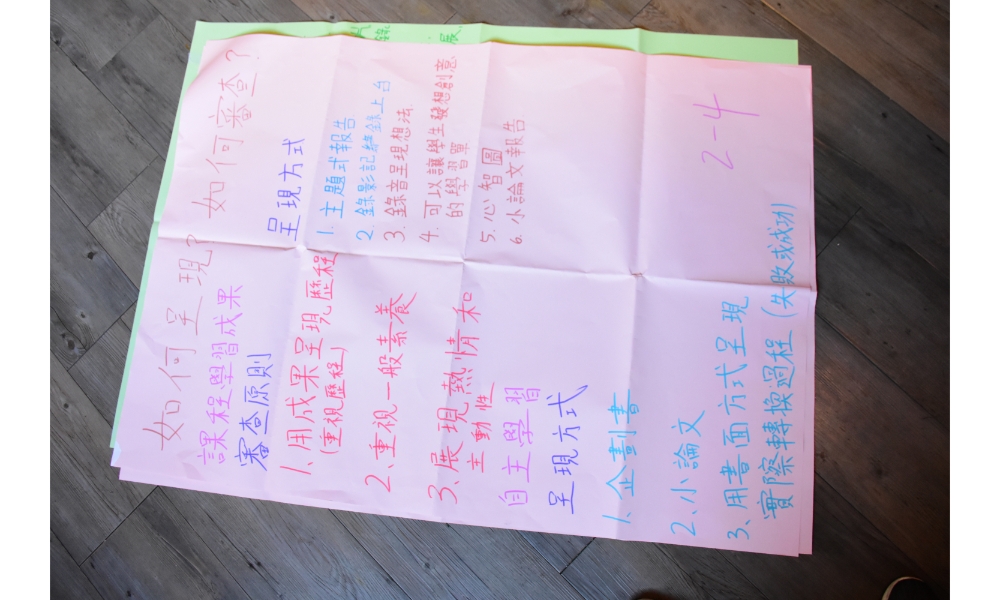 如何呈現? 如何審查?
課程學習成果
審查原則
1、用成果呈現歷程
(重視歷程)
2、重視一般素養
3、展現熱情和
主動性
自主學習
呈現方式
1、企劃書
2、小論文
3、用書面方式呈現
實際轉換過程(失敗或成功)
呈現方式
1. 主題式報告
2. 錄影記錄錄上台
3. 錄音呈現想法.
4. 可以讓學生發想創意
的學習單
5. 心智圖
6. 小論文報告
2-4
展.